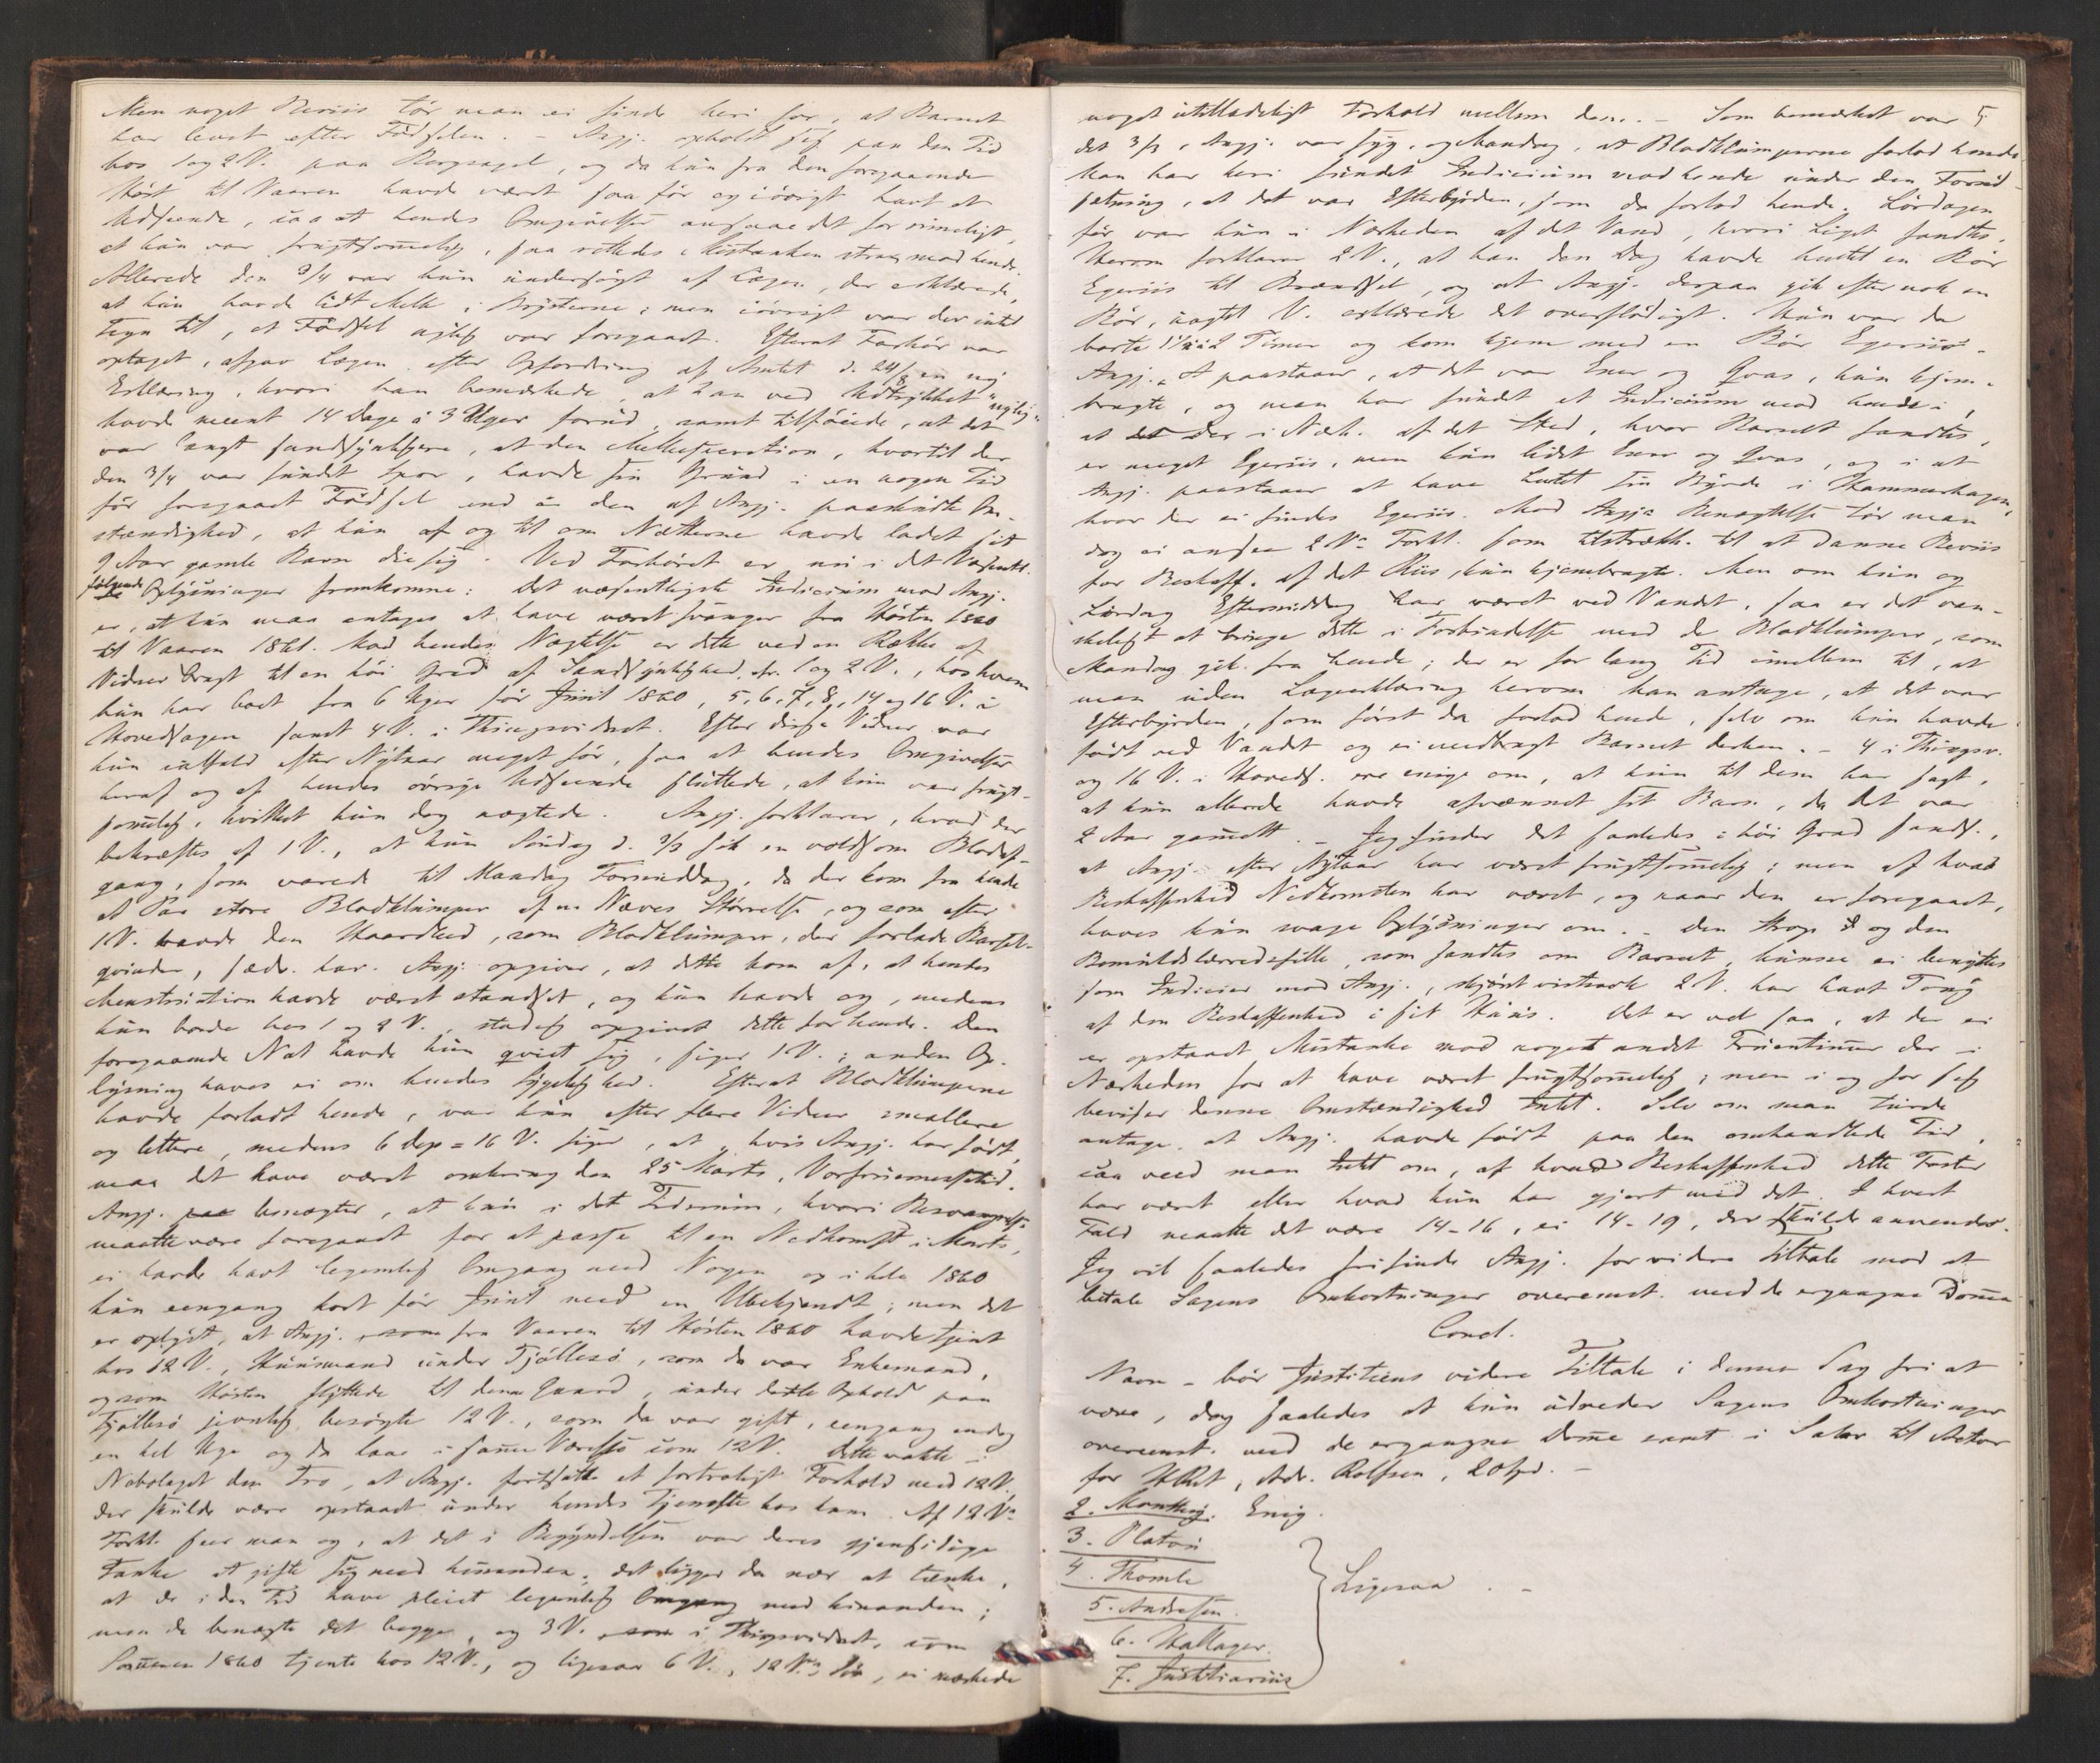 Men noget Beviis tör man ei finde heri for, at Barnet
har levet efter Födselen. – Angj. opholdt sig paa den Tid
hos 1 og 2 V. paa Borgsaget, og da hun fra den foregaaende
Höst til Vaaren havde været saa för og iövrigt havt et
Udseende, saa at hendes Omgivelser ansaae det for rimeligt,
at hun var frugtsommelig, saa rettedes Mistanken strax mod hende.
Allerede den 3/4 var hun undersögt af Lægen, der erklærede,
at hun havde lidt Melk i Brysterne; men iövrigt var der intet
Tegn til, at Födsel nylig var foregaaet. Efterat Forhör var
optaget, afgav Lægen efter Opfordring af Amtet d. 24/8 en ny
Erklæring, hvori han bemærkede, at han ved Udtrykket "nylig"
havde meent 14 Dage à 3 Uger forud, samt tilföiede, at det
var langt sandsynligere, at den Melkesecretion, hvortil der
den 3/4 var fundet Spor, havde sin Grund i en nogen Tid
för foregaaet Födsel end i den af Angj. paaskudte Om-
stændighed, at hun af og til om Nætterne havde ladet sit
9 Aar gamle Barn die sig. Ved Forhöret er nu i det Væsentl.
følgende Oplysninger fremkomne: Det væsentligste Indicium mod Angj.
er, at hun maa antages at have været svanger fra Hösten 1860
til Vaaren 1861. Mod hendes Nægtelse er dette ved en Række af
Vidner bragt til en höi Grad af Sandsynlighed, cfr. 1 og 2 V., hos hvem
hun har boet fra 6 Uger för Juul 1860, 5, 6, 7, 8, 14 og 16 V. i
Hovedsagen samt 4 V. i Thingsvidnet. Efter disse Vidner var
hun ialfald efter Nytaar meget för, saa at hendes Omgivelser
heraf og af hendes övrige Udseende sluttede, at hun var frugt-
sommelig, hvilket hun dog nægtede. Angj. forklarer, hvad der
bekræftes af 1 V., at hun Söndag d. 3/3 fik en voldsom Blodaf-
gang, som varede til Mandag Formiddag, da der kom fra hende
et Par store Blodklumper af en Næves Störrelse, og som efter
1 V. havde den Haardhed, som Blodklumper, der forlade Barsel-
qvinder, sædv. har. Angj. opgiver, at dette kom af, at hendes
Menstruation havde været standset, og hun havde og, medens
hun boede hos 1 og 2 V., stadig opgivet dette for hende. Den
foregaaende Nat havde hun qviet sig, siger 1 V.; anden Op-
lysning haves ei om hendes Sygelighed. Efterat Blodklumperne
havde forladt hende, var hun efter flere Vidner smallere
og lettere, medens 6 dep = 16 V. siger, at, hvis Angj. har födt,
maa det have været omkring den 25 Marts, Vorfruemessetid.
Angj. benægter, at hun i det Tidsrum, hvori Besvangrelse
maatte være foregaaet for at passe til en Nedkomst i Marts,
ei havde havt legemlig Omgang med Nogen og i hele 1860
kun eengang kort för Juul med en Ubekjendt; men det
er oplyst, at Angj. som fra Vaaren til Hösten 1860 havde tjent
hos 12 V., Huusmand under Tjöllesö, som da var Enkemand,
og som Hösten flyttede til denne Gaard, under dette Ophold paa
Tjöllesö jevnlig besögte 12 V., som da var gift, eengang endog
en hel Uge og da laae i samme Værelse som 12 V. Dette vakte i
Nabolaget den Tro, at Angj. fortsatte et fortroligt Forhold med 12 V.,
der skulde være opstaaet under hendes Tjeneste hos ham. Af 12 V's
Forkl. seer man og, at det i Begyndelsen var deres gjensidige
Tanke at gifte sig med hinanden; det ligger da nær at tænke,
at de i den Tid have pleiet legemlig Omgang med hinanden;
men de benægte det begge, og 3 V. i Thingsvidnet, som
Sommeren 1860 tjente hos 12 V., og ligesaa 6 V., 12 V's Sön, ei mærkede
noget utilladeligt Forhold mellem dem. – Som bemærket var 5
det 3/3, Angj. var syg, og Mandag, at Blodklumperne forlod hende.
Man har heri fundet Indicium mod hende under den Forud-
sætning, at det var Efterbyrden, som da forlod hende. Lördagen
för var hun i Nærheden af det Vand, hvori Liget fandtes.
Herom forklarer 2 V., at han den Dag havde hentet en Bör
Egeriis til Brændsel, og at Angj. derpaa gik efter nok en
Bör, uagtet V. erklærede det overflödigt. Hun var da
borte 1½ à 2 Timer og kom hjem med en Bör Egeriis.
Angj. paastaaer, at det var Ener og Qvas, hun hjem-
bragte, og man har fundet et Indicium mod hende i,
at der i Nærh. af det Sted, hvor Barnet fandtes,
er meget Egeriis, men kun lidet Ener og Qvas, og i at
Angj. paastaaer at have hentet sin Byrde i Hammerhagen,
hvor der ei findes Egeriis. Mod Angjs Benægtelse tör man
dog ei ansee 2 V's Forkl. som tilstrækk. til at danne Beviis
for Beskaff. af det Riis, hun hjembragte. Men om hun og
Lördag Eftermiddag har været ved Vandet, saa er det van-
skeligt at bringe dette i Forbindelse med de Blodklumper, som
Mandag gik fra hende; der er for lang Tid imellem til, at
man uden Lægeerklæring herom kan antage, at det var
Efterbyrden, som först da forlod hende, selv om hun havde
födt ved Vandet og ei medbragt Barnet derhen. – 4 i Thingsv.
og 16 V. i Hoveds. ere enige om, at hun til dem har sagt,
at hun allerede havde afvænnet sit Barn, da det var
2 Aar gammelt. – Jeg finder det saaledes i höi Grad sands.,
at Angj. efter Nytaar har været frugtsommelig; men af hvad
Beskaffenhed Nedkomsten har været, og naar den er foregaaet,
haves kun svage Oplysninger om. – Den Strop og den
Bomuldslærredsfille, som fandtes om Barnet, kunne ei benyttes
som Indicier mod Angj., skjönt 2 V. har havt Toug
af den Beskaffenhed i sit Huus. Det er vel saa, at der ei
er opstaaet Mistanke mod noget andet Fruentimmer der i
Nærheden for at have været frugtsommelig; men i og for sig
beviser denne Omstændighed Intet. Selv om man turde
antage, at Angj. havde födt paa den omhandlede Tid,
saa veed man Intet om, af hvad Beskaffenhed dette Foster
har været eller hvad hun har gjort med det. I hvert
Fald maatte det være 14-16, ei 14-19, der skulde anvendes.
Jeg vil saaledes frifinde Angj. for videre Tiltale mod at
betale Sagens Omkostninger overeenst. med de ergangne Domme
Concl.
Navn – bör Justitiens videre Tiltale i denne Sag fri at
være, dog saaledes at hun udreder Sagens Omkostninger
overeenst. med de ergangne Domme samt i Salær til Actor
for HRet, Adv. Rolfsen, 20 Spd. –
2. Manthey. Enig.
3. Platou
4. Thomle
5. Andresen. Ligesaa. –
6. Hallager.
7. Justitiarius